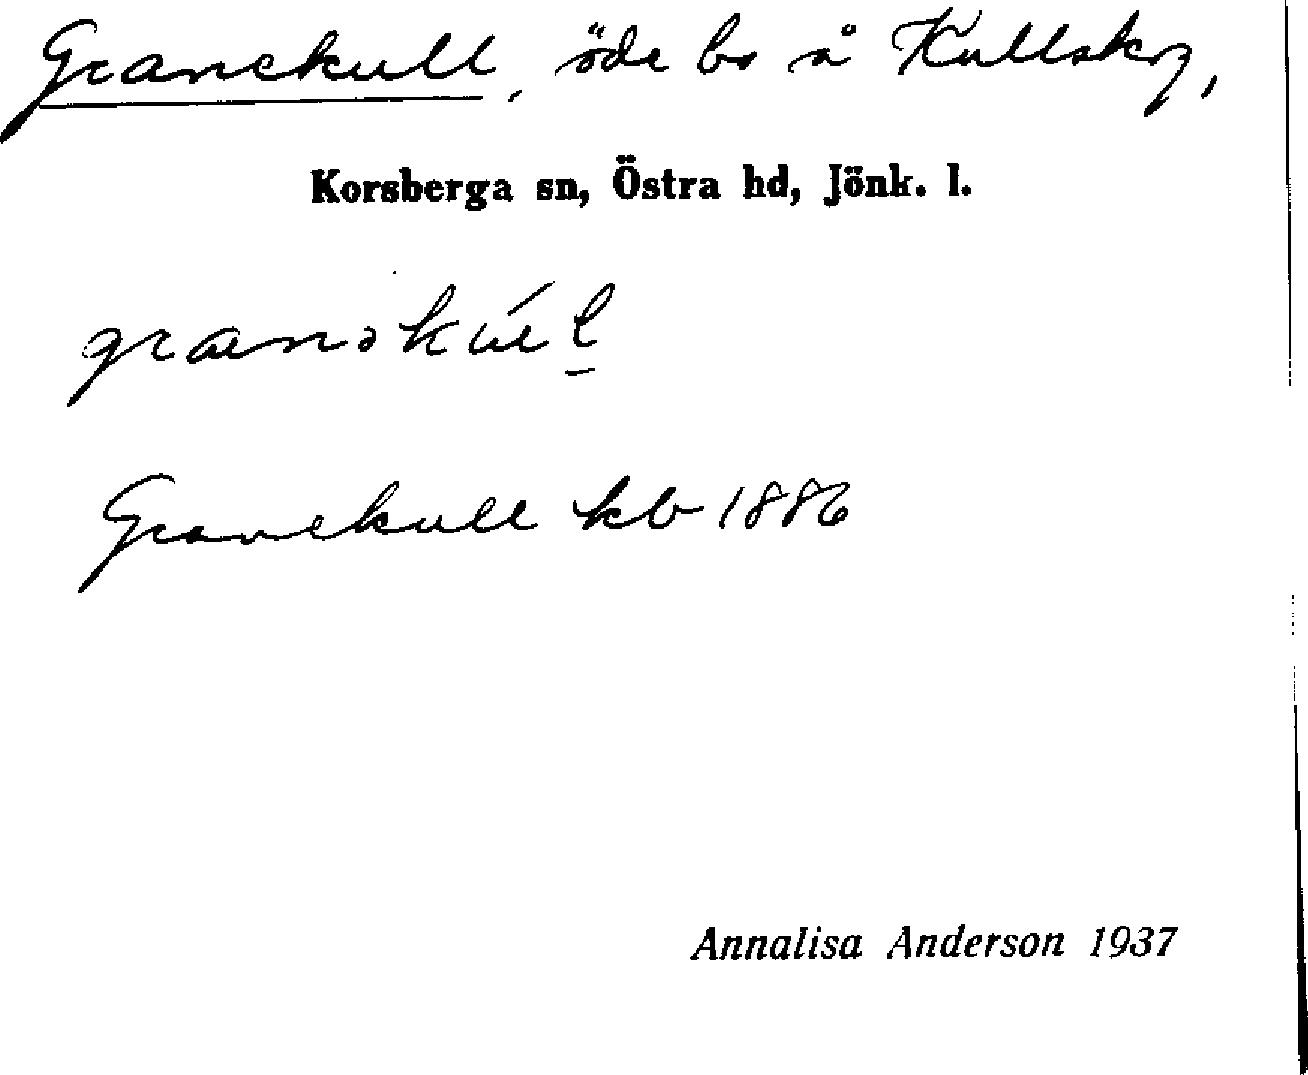 Granekull, öde bs å Kullskog,
Korsberga sn, Östra hd, Jönk. l.
Granekull kb 1886
Annalisa Anderson 1937